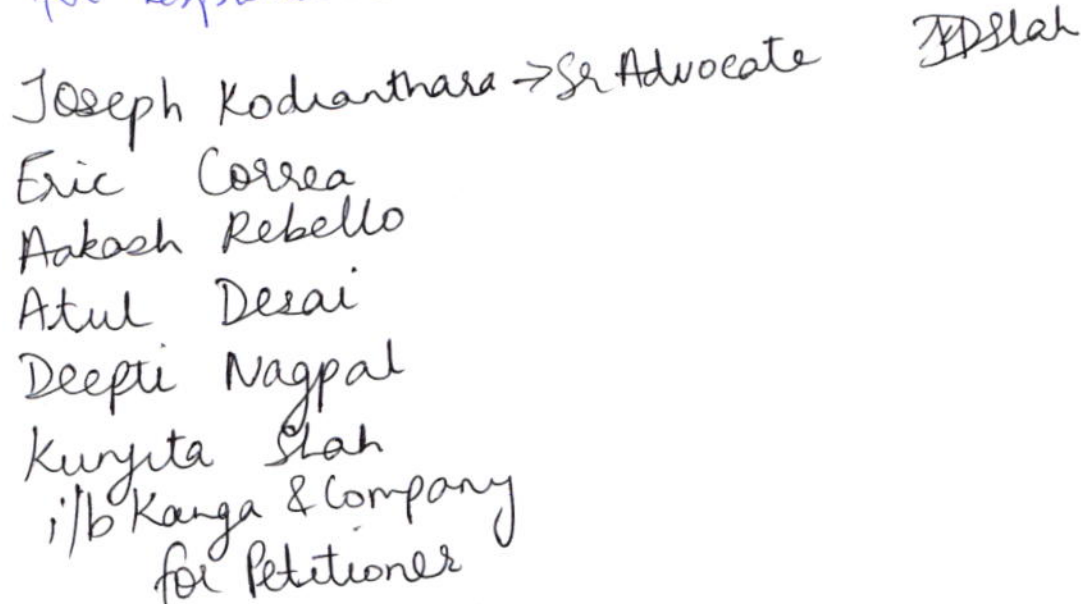 for
Joseph Kodianthara → Sr Advocate
Eric Correa
Aakash Rebello
Atul Desai
Deepti Nagpal
Kunjita Shah
i/b Kanga & Company
for Petitioner